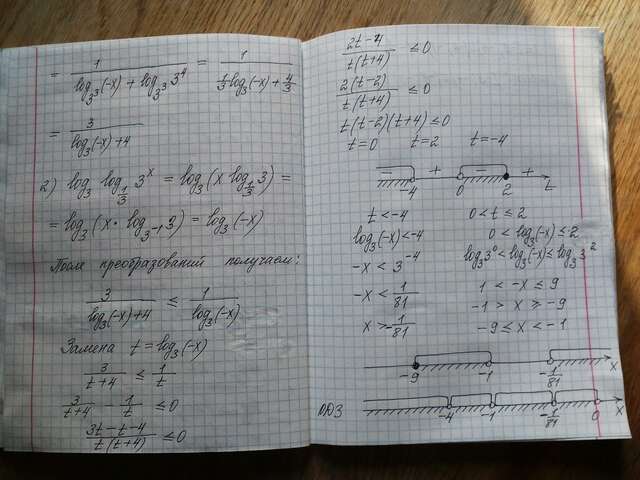 = 1/(log_{3^3}(-x) + log_{3^3} 3^4) = 1/(1/3 log_3(-x) + 4/3)
= 3/(log_3(-x) + 4)
2) log_3 log_{1/3} 3^x = log_3 (x log_{1/3} 3) =
= log_3 (x · log_{3^{-1}} 3) = log_3 (-x)
После преобразований получаем:
3/(log_3(-x) + 4) ≤ 1/(log_3(-x))
Замена t = log_3(-x)
3/(t+4) ≤ 1/t
3/(t+4) - 1/t ≤ 0
(3t - t - 4)/(t(t+4)) ≤ 0
(2t - 4)/(t(t+4)) ≤ 0
2(t-2)/(t(t+4)) ≤ 0
t(t-2)(t+4) ≤ 0
t=0 t=2 t=-4
- + - +
-4 0 2 t
t < -4 0 < t ≤ 2
log_3(-x) < -4 0 < log_3(-x) ≤ 2
-x < 3^{-4} log_3 3^0 < log_3(-x) ≤ log_3 3^2
-x < 1/81 1 < -x ≤ 9
x > -1/81 -1 > x ≥ -9
-9 ≤ x < -1
-9 -1 -1/81 x
ОДЗ -4 -1 -1/81 0 x